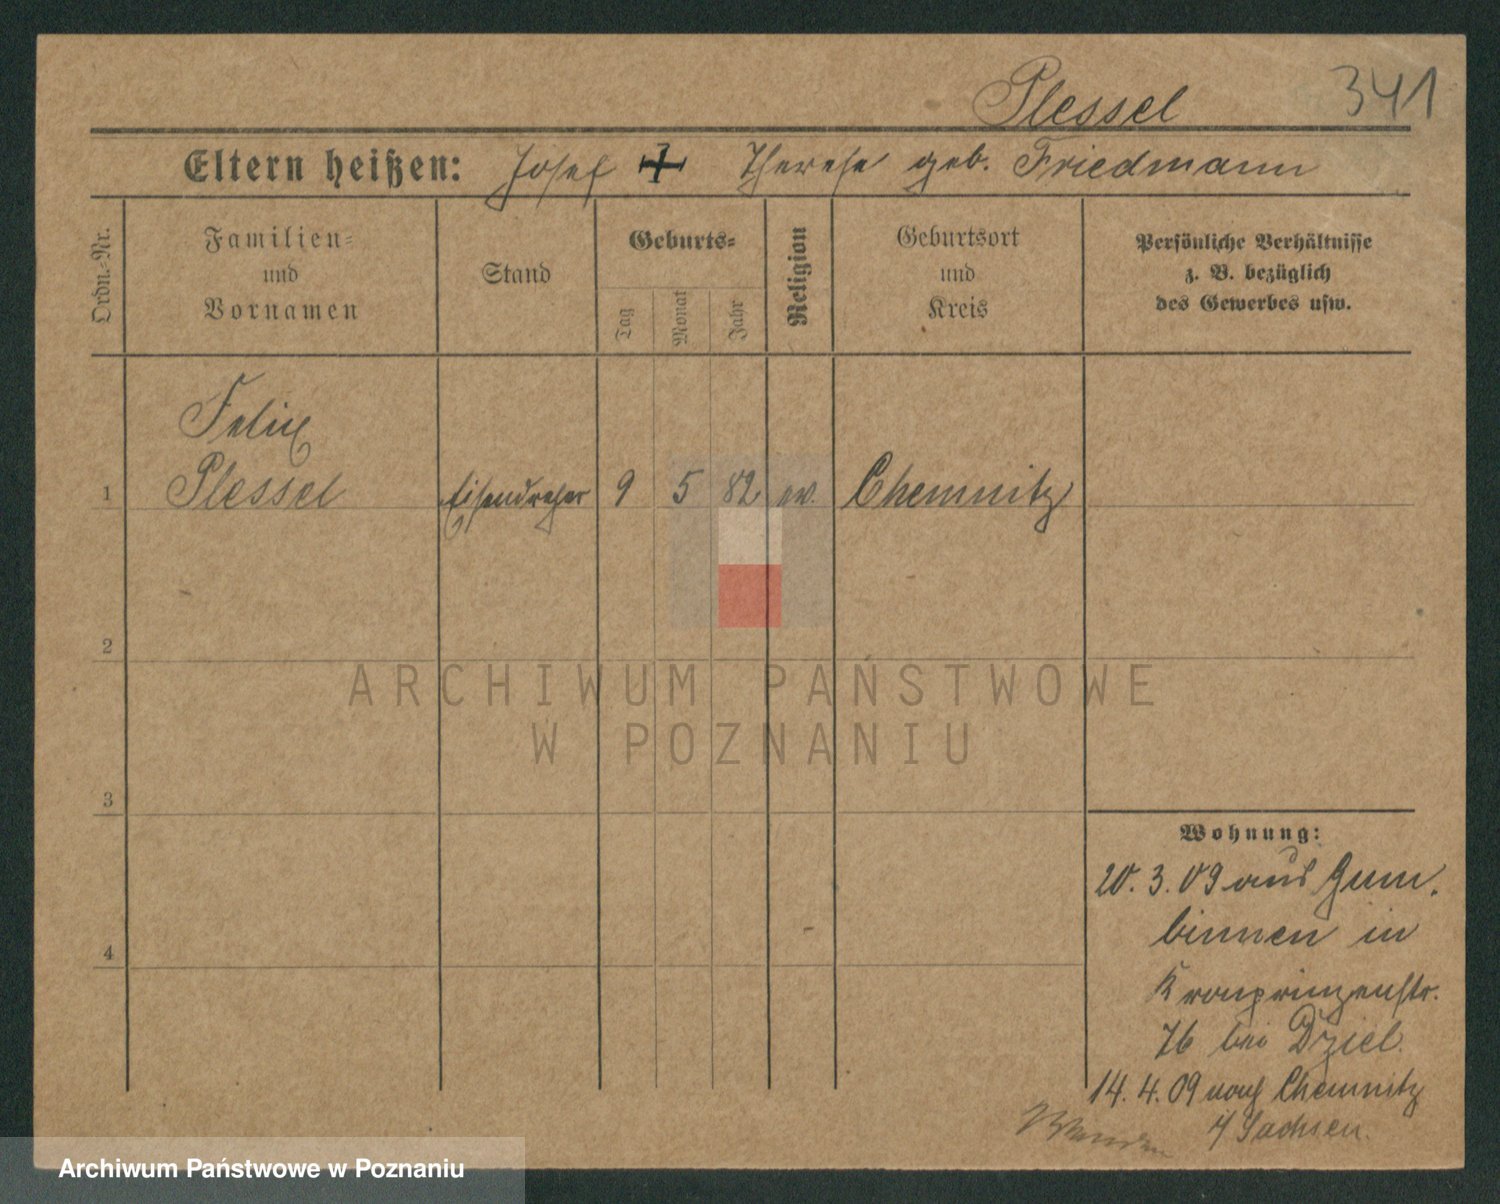 Plessel 341
Eltern heißen: Josef + Therese geb. Friedmann
Ordn.-Nr.
Familien-
und
Vornamen
Stand
Geburts-
Tag
Monat
Jahr
Religion
Geburtsort
und
Kreis
Persönliche Verhältnisse
z. B. bezüglich
des Gewerbes usw.
Felix
1 Plessel Eisendreher 9 5 82 ev. Chemnitz
2
3
4
Wohnung:
20.3.09 aus Gum.
binnen in
Kronprinzenstr.
76 bei Dziel.
14.4.09 nach Chemnitz
i/ Sachsen.
ARCHIWUM PAŃSTWOWE
W POZNANIU
Archiwum Państwowe w Poznaniu